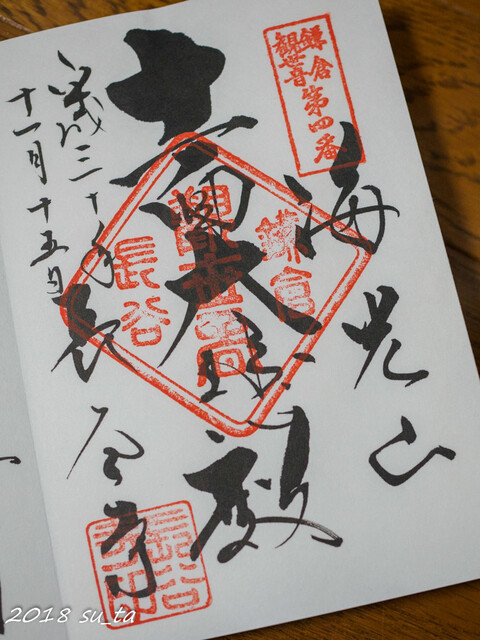 鎌倉
観世音
第四番
海光山
十一面大悲殿
鎌倉
観世音
長谷
平成三十年
十一月十五日
長谷寺
長谷
寺印
2018 su_ta